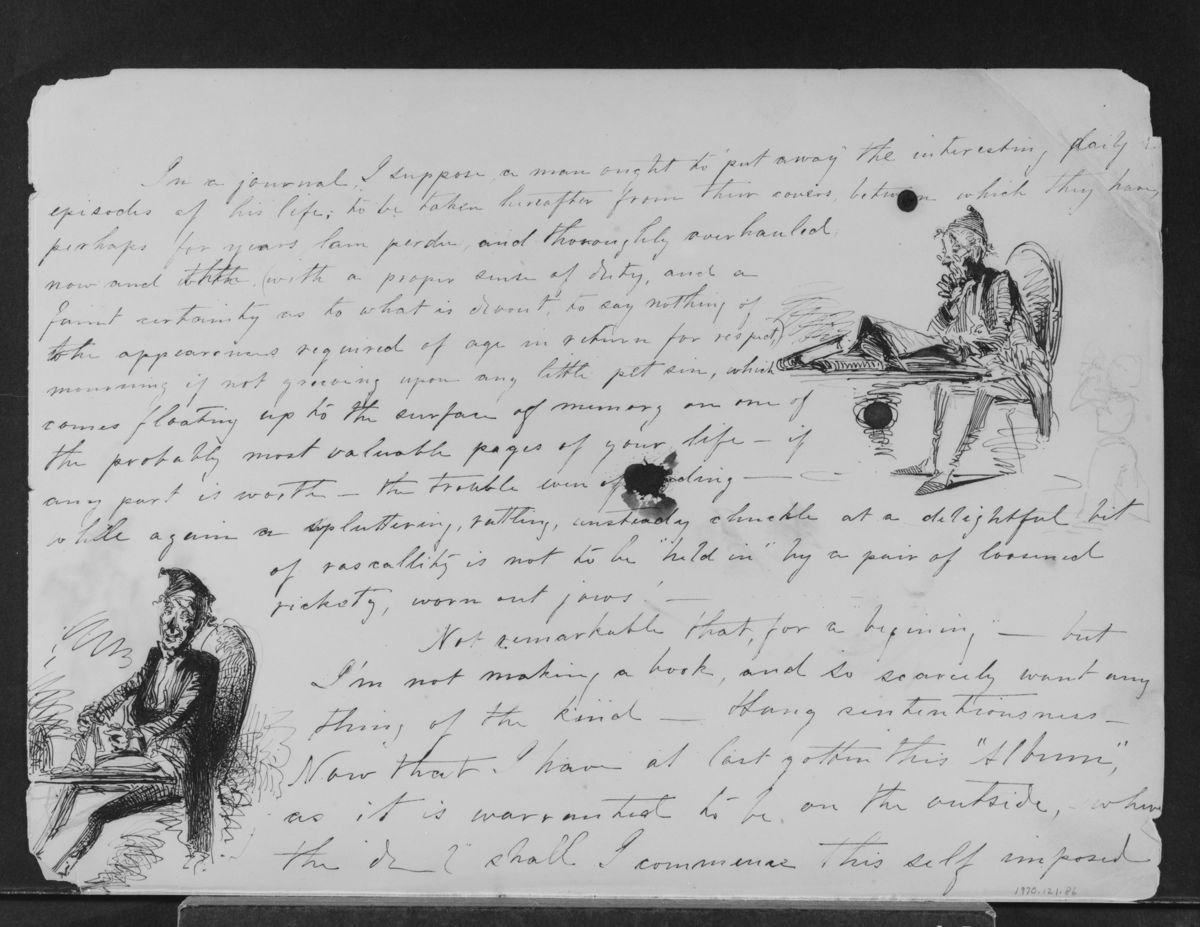 In a journal, I suppose a man ought to "put away" the interesting daily
episodes of his life; to be taken hereafter from their covers, between which they have,
perhaps for years lain perdu, and thoroughly overhauled;
now and then, (with a proper sense of duty, and a
faint certainty as to what is devout, to say nothing of
the appearances required of age in return for respect)
mourning if not grieving upon any little pet sin, which
comes floating up to the surface of memory on one of
the probably most valuable pages of your life — if
any part is worth — the trouble even of —
while again a spluttering, rattling, unsteady chuckle at a delightful bit
of rascallity is not to be "held in" by a pair of loosened
rickety, worn out jaws! —
Not remarkable that, for a "begining" — but
I'm not making a book, and so scarcely want any
thing of the kind — Hang sententiousness —
Now that I have at last gotten this "Album",
as it is warranted to be on the outside, where
the d— l shall I commence this self imposed
1970.121.86